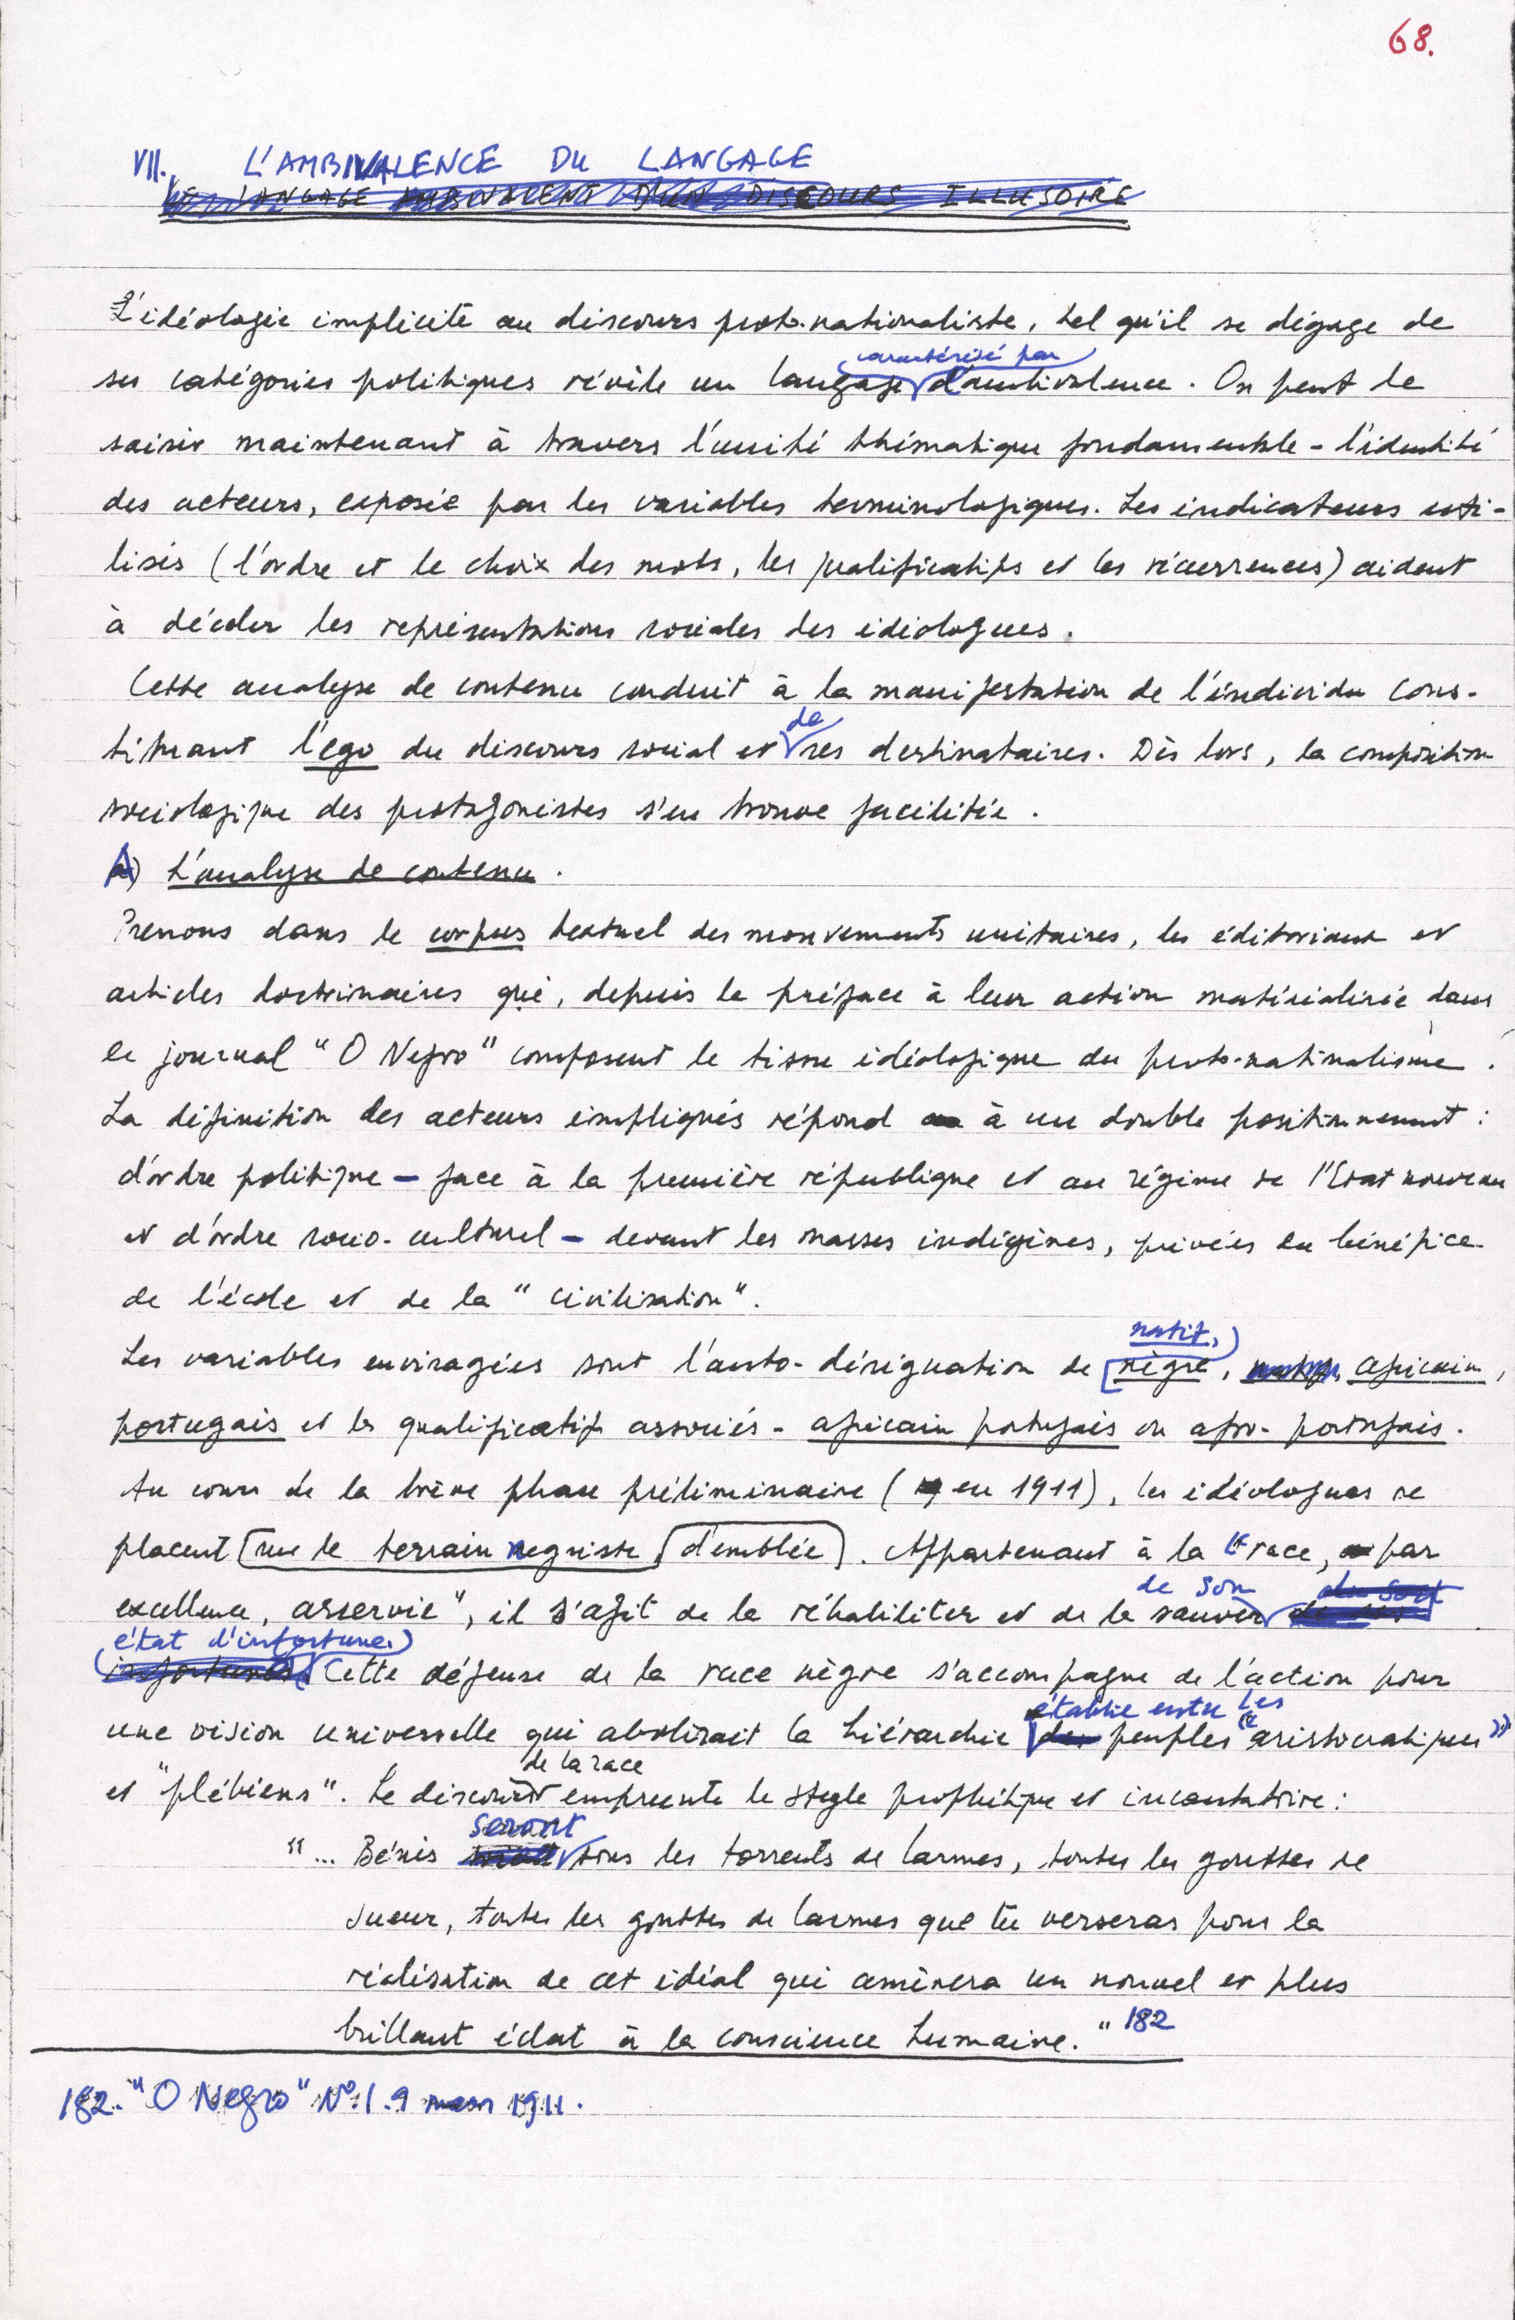 68.
VII. L'AMBIVALENCE DU LANGAGE
LE LANGAGE AMBIVALENT D'UN DISCOURS ILLUSOIRE
L'idéologie implicite au discours proto-nationaliste, tel qu'il se dégage de
caractérisé par
ses catégories politiques révèle un langage d'ambivalence. On peut le
saisir maintenant à travers l'unité thématique fondamentale - l'identité
des acteurs, exposée par les variables terminologiques. Les indicateurs uti-
lisés (l'ordre et le choix des mots, les qualificatifs et les récurrences) aident
à déceler les représentations sociales des idéologues.
Cette analyse de contenu conduit à la manifestation de l'individu cons-
de
tituant l'ego du discours social et ses destinataires. Dès lors, la composition
sociologique des protagonistes s'en trouve facilitée.
A) L'analyse de contenu.
Prenons dans le corpus textuel des mouvements unitaires, les éditoriaux et
articles doctrinaires qui, depuis la préface à leur action matérialisée dans
le journal "O Negro" composent le tissu idéologique du proto-nationalisme.
La définition des acteurs impliqués répond à un double positionnement :
d'ordre politique - face à la première république et au régime de l'Etat nouveau
et d'ordre socio-culturel - devant les masses indigènes, privées du bénéfice
de l'école et de la "civilisation".
natif,
Les variables envisagées sont l'auto-désignation de nègre, africain,
portugais et les qualificatifs associés - africain portugais ou afro-portugais.
Au cours de la brève phase préliminaire (en 1911), les idéologues se
placent sur le terrain negriste d'emblée. Appartenant à la "race, par
de son du sort
excellence, asservie", il s'agit de la réhabiliter et de la sauver de ses
état d'infortune.
infortunes. Cette défense de la race nègre s'accompagne de l'action pour
établie entre les
une vision universelle qui abolirait la hiérarchie des peuples "aristocratiques"
de la race
et "plébiens". Le discours emprunte le style prophétique et incantatoire :
seront
"... Bénis soient tous les torrents de larmes, toutes les gouttes de
sueur, toutes les gouttes de larmes que tu verseras pour la
réalisation de cet idéal qui amènera un nouvel et plus
brillant éclat à la conscience humaine." 182
182. "O Negro" Nº 1. 9 mars 1911.